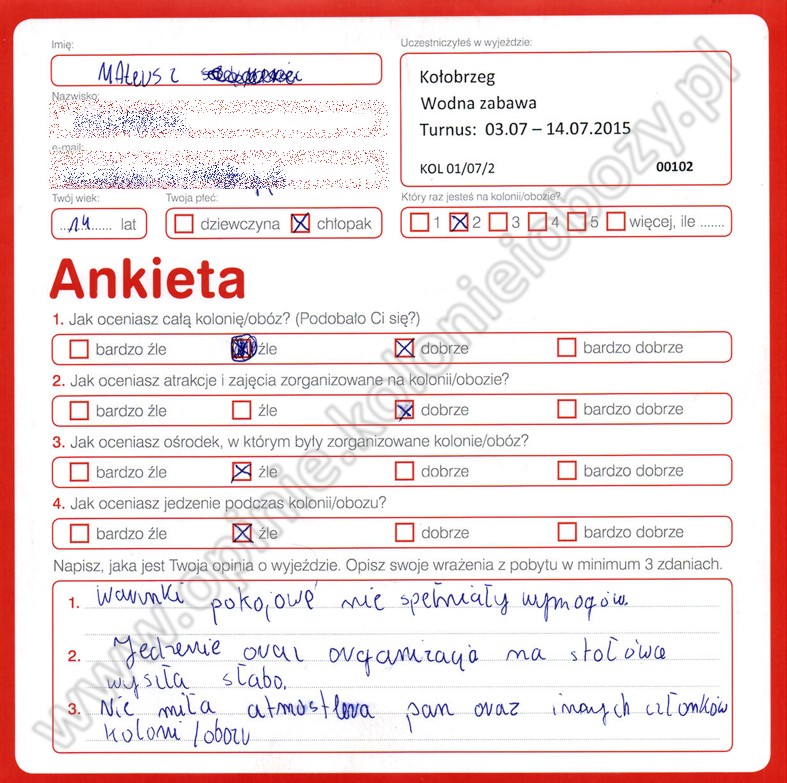 Imię:
Mateusz
Uczestniczyłeś w wyjeździe:
Kołobrzeg
Wodna zabawa
Turnus: 03.07 – 14.07.2015
KOL 01/07/2 00102
Nazwisko:
e-mail:
Twój wiek:
14 lat
Twoja płeć:
dziewczyna chłopak
Który raz jesteś na kolonii/obozie?
1 2 3 4 5 więcej, ile .......
Ankieta
1. Jak oceniasz całą kolonię/obóz? (Podobało Ci się?)
bardzo źle źle dobrze bardzo dobrze
2. Jak oceniasz atrakcje i zajęcia zorganizowane na kolonii/obozie?
bardzo źle źle dobrze bardzo dobrze
3. Jak oceniasz ośrodek, w którym były zorganizowane kolonie/obóz?
bardzo źle źle dobrze bardzo dobrze
4. Jak oceniasz jedzenie podczas kolonii/obozu?
bardzo źle źle dobrze bardzo dobrze
Napisz, jaka jest Twoja opinia o wyjeździe. Opisz swoje wrażenia z pobytu w minimum 3 zdaniach.
1. Warunki pokojowe nie spełniały wymogów.
2. Jedzenie oraz organizacja na stołówce
wyszła słabo.
3. Nie miła atmosfera pan oraz innych członków
koloni/obozu
www.opinie.kolonieiobozy.pl